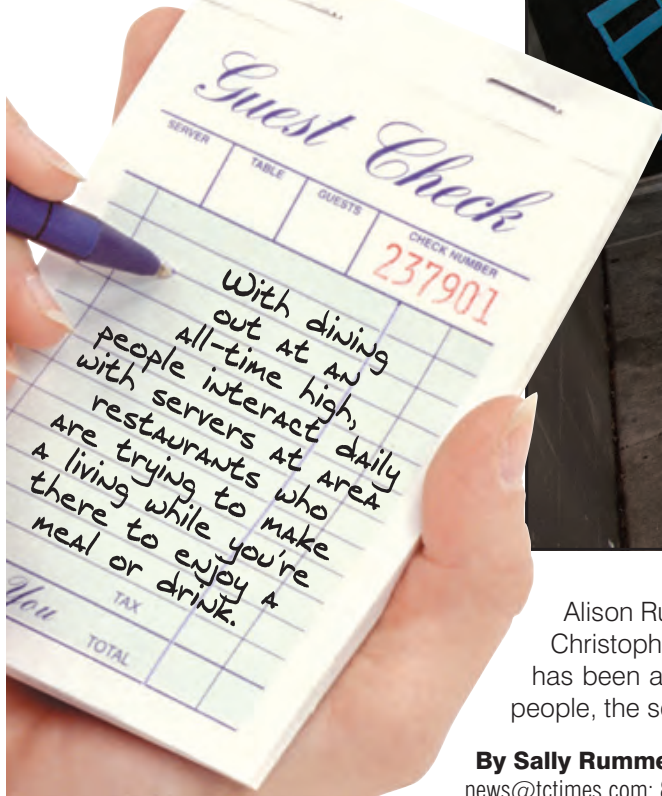 Guest Check
SERVER TABLE GUESTS CHECK NUMBER
237901
With dining
out at an
all-time high,
people interact daily
with servers at area
restaurants who
are trying to make
a living while you're
there to enjoy a
meal or drink.
You TAX
TOTAL
Alison
Christoph
has been a
people, the
By Sally
news@tctimes.com;